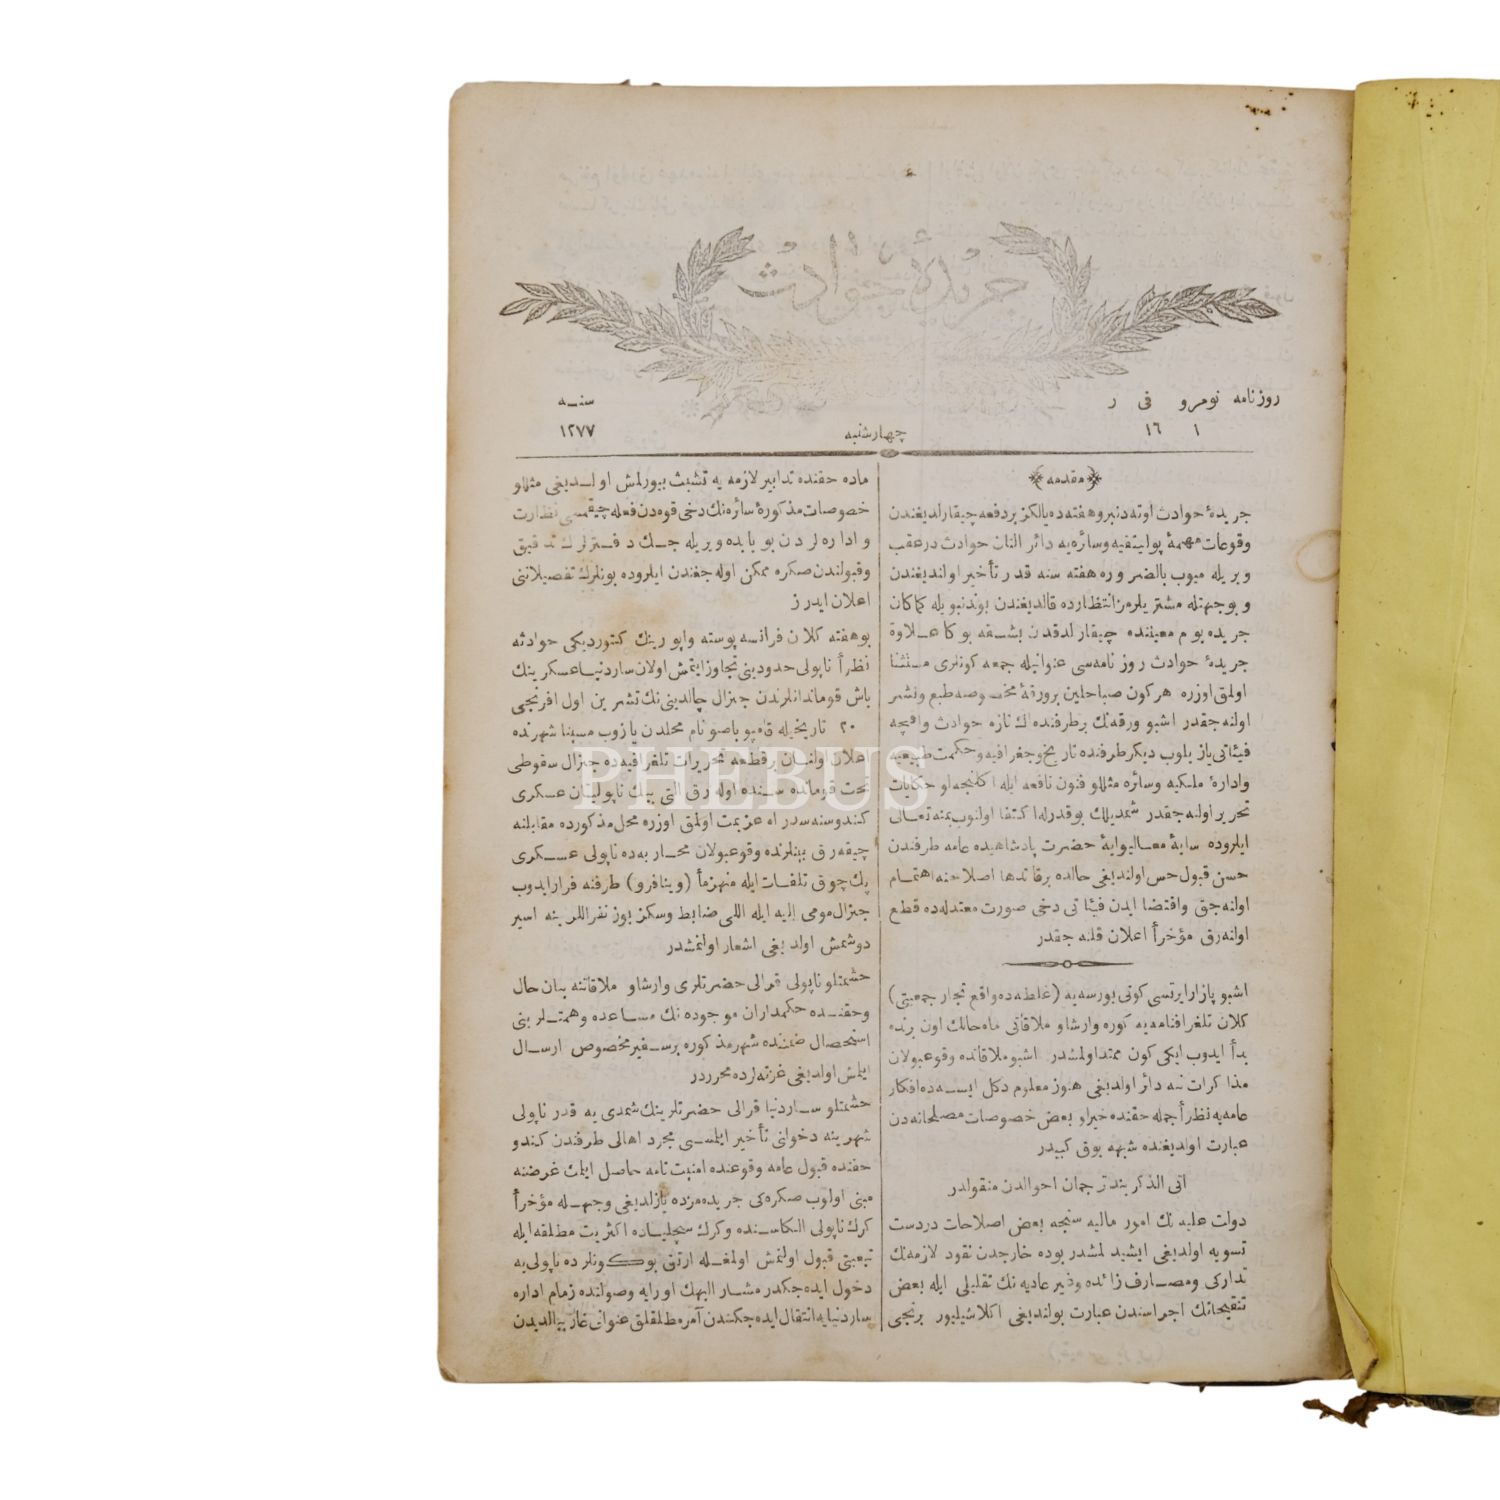 جريدهٔ حوادث
روزنامه نومرو فى ر سنـه
١ ١٦ چهارشنبه ١٢٧٧
مقدمه
جريدهٔ حوادث اوته دنبرو هفته ده يالكز بر دفعه چيقارلديغندن
وقوعات مهمهٔ پوليتقيه وسائره يه دائر النان حوادث درعقب
ويريله ميوب بالضروره هفته سنه قدر تأخير اولنديغندن
وبوجهتله مشتريلرمز انتظارده قالديغندن بوندنبويله كماكان
جريده يوم معيننده چيقارلدقدن بشقه بوكا علاوة
جريدهٔ حوادث روزنامه سى عنوانيله جمعه كونلرى مستثنا
اولمق اوزره هركون صباحلين بر ورقهٔ مخصوصه طبع ونشر
اولنه جقدر اشبو ورقه نك بر طرفنده ك تازه حوادث واقچه
فيئاتى يازيلوب ديكر طرفنده تاريخ وجغرافيه وحكمت طبيعيه
وادارهٔ ملكيه وسائره مثللو فنون نافعه ايله اكلنجه لو حكايات
تحرير اولنه جقدر شمديلك بوقدرله اكتفا اولنوب بمنه تعالى
ايلروده سايهٔ معاليوايهٔ حضرت پادشاهيده عامه طرفندن
حسن قبول حس اولنديغى حالده برقاتدها اصلاحنه اهتمام
اولنه جق واقتضا ايدن فيئاتى دخى صورت معتدله ده قطع
اولنه رق مؤخرأ اعلان قلنه جقدر
اشبو پازارايرتسى كونى بورسه يه (غلطه ده واقع تجار جمعيتى)
كلان تلغرافنامه يه كوره وارشاو ملاقاتى ماه حالك اون برنده
بدأ ايدوب ايكى كون ممتد اولمشدر اشبو ملاقاتده وقوعبولان
مذاكرات نيه دائر اولديغى هنوز معلوم دكل ايسه ده افكار
عامه يه نظرأ جمله حقنده خيرلو بعض خصوصات مصلحانه دن
عبارت اولديغنده شبهه يوق كبيدر
اتى الذكر بند ترجمان احوالدن منقولدر
دولت عليه نك امور ماليه سنجه بعض اصلاحات دردست
تسويه اولديغى ايشيدلمشدر بوده خارجدن نقود لازمه نك
تداركى ومصارف زائده وغير عاديه نك تقليلى ايله بعض
تنقيحاتك اجراسندن عبارت بولنديغى اكلاشيليور برنجى
ماده حقنده تدابير لازمه يه تشبث بيورلمش اولديغى مثللو
خصوصات مذكورهٔ سائره نك دخى قوه دن فعله چيقمسى نظارت
واداره لردن بو بابده ويريله جك دفترلرك تدقيق
وقبولندن صكره ممكن اوله جغندن ايلروده بونلرك تفصيلاتنى
اعلان ايدرز
بوهفته كلان فرانسه پوسته واپورينك كتورديكى حوادثه
نظرأ ناپولى حدودينى تجاوز ايتمش اولان ساردنيا عسكرينك
باش قوماندانلرندن جنرال چالدينى نك تشرين اول افرنجى
٢٠ تاريخيله قامپوباصو نام محلدن يازوب مسينا شهرنده
اعلان اولنان بر قطعه تحريرات تلغرافيه ده جنرال سقوطى
تحت قومانده سنده اوله رق التى بيك ناپوليتان عسكرى
كندوسنه سد راه عزيمت اولمق اوزره محل مذكورده مقابلنه
چيقه رق بينلرنده وقوعبولان محاربه ده ناپولى عسكرى
پك چوق تلفات ايله منهزمأ (وينافرو) طرفنه فرار ايدوب
جنرال مومى اليه ايله اللى ضابط وسكز يوز نفر اللرينه اسير
دوشمش اولديغى اشعار اولنمشدر
حشمتلو ناپولى قرالى حضرتلرى وارشاو ملاقاتنه بيان حال
وحقنده حكمداران موجوده نك مساعده وهمتلرينى
استحصال ضمننده شهر مذكوره بر سفير مخصوص ارسال
ايلمش اولديغى غزته لرده محرردر
حشمتلو ساردنيا قرالى حضرتلرينك شمدى يه قدر ناپولى
شهرينه دخوانى تأخير ايلمسى مجرد اهالى طرفندن كندو
حقنده قبول عامه وقوعنده امنيت تامه حاصل ايلمك غرضنه
مبنى اولوب صكره كى جريده مزده يازلديغى وجهله مؤخرأ
كرك ناپولى الكاسنده وكرك سجلياده اكثريت مطلقه ايله
تبعيتى قبول اولنمش اولمغله ارتق بوكونلرده ناپولى يه
دخول ايده جكدر مشار اليهك اورايه وصولنده زمام اداره
ساردنيايه انتقال ايده جكندن آمر مطلقلق عنوانى غاريبالديدن
PHEBUS